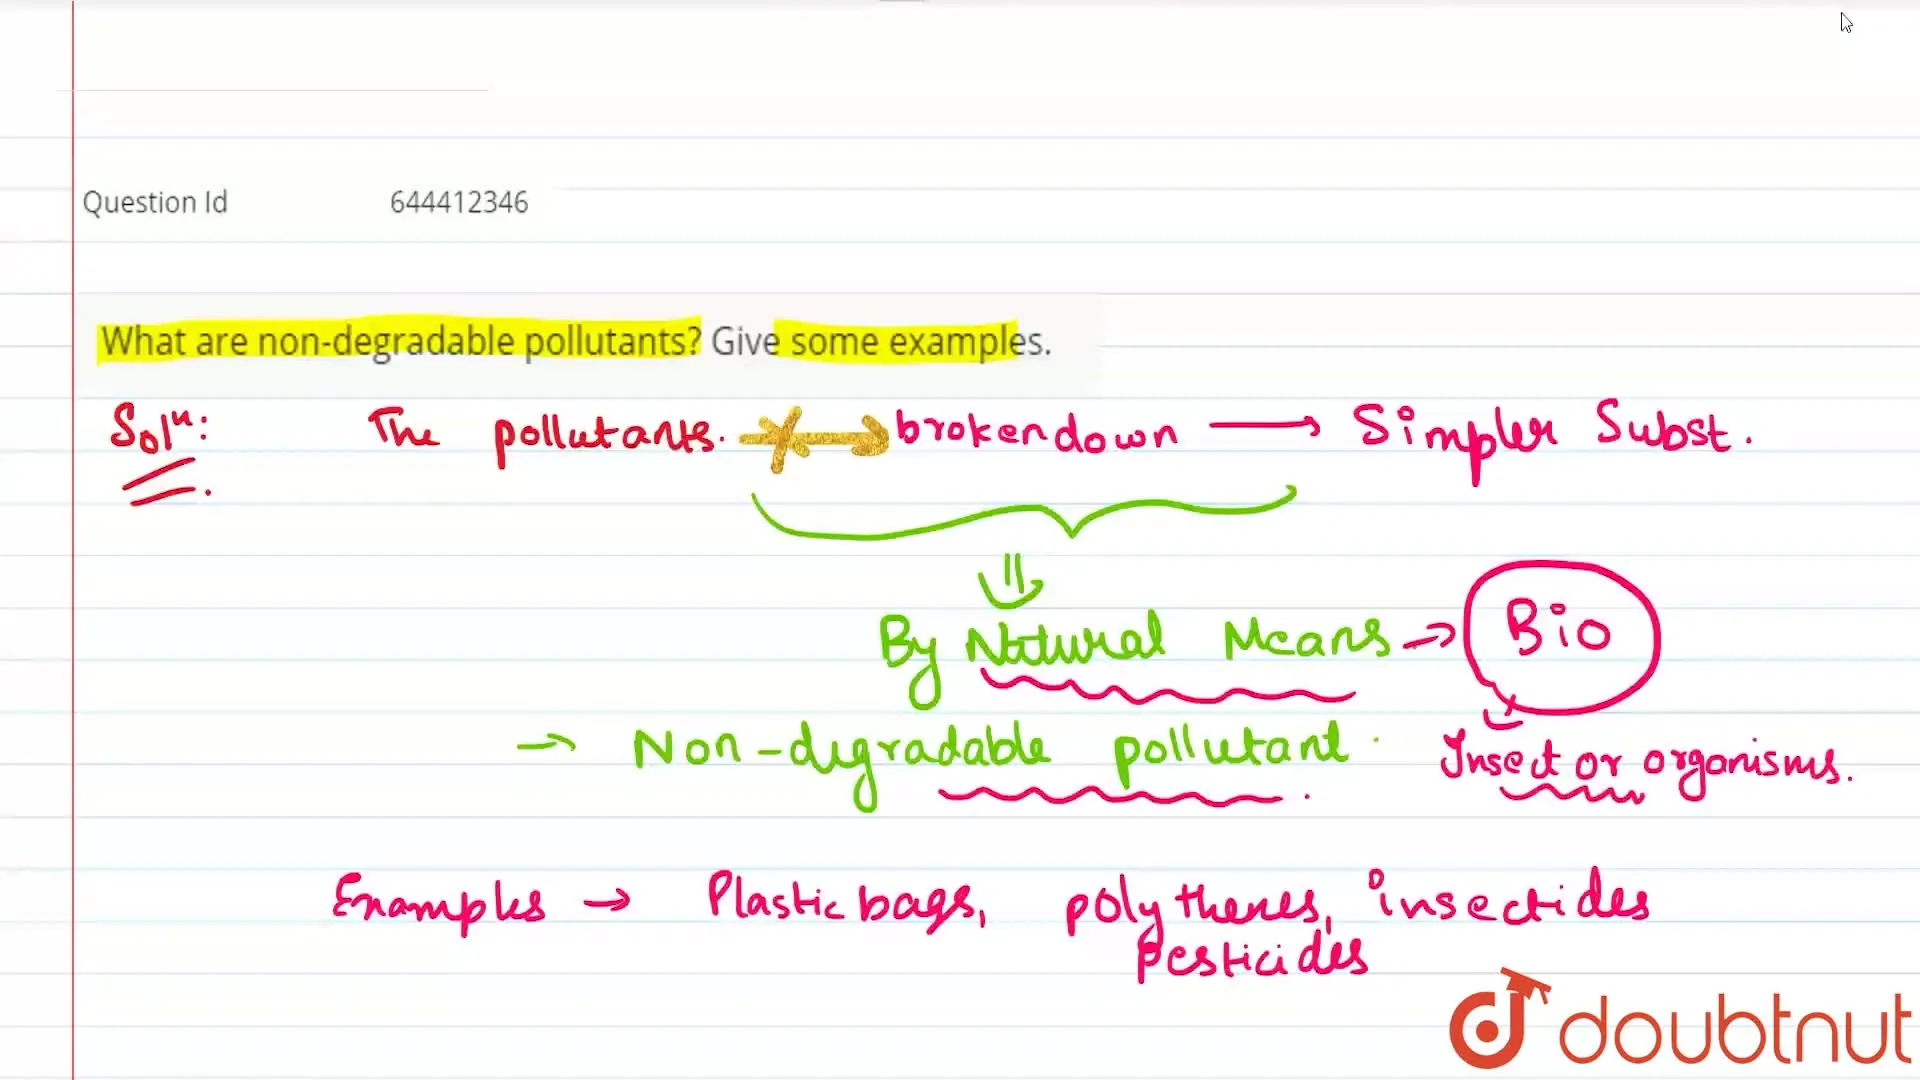 Question Id 644412346
What are non-degradable pollutants? Give some examples.
Solⁿ: The pollutants. brokendown → Simpler Subst.
By Natural Means → Bio
→ Non-degradable pollutant. Insect or organisms.
Examples → Plastic bags, polythenes, insectides
pesticides
doubtnut